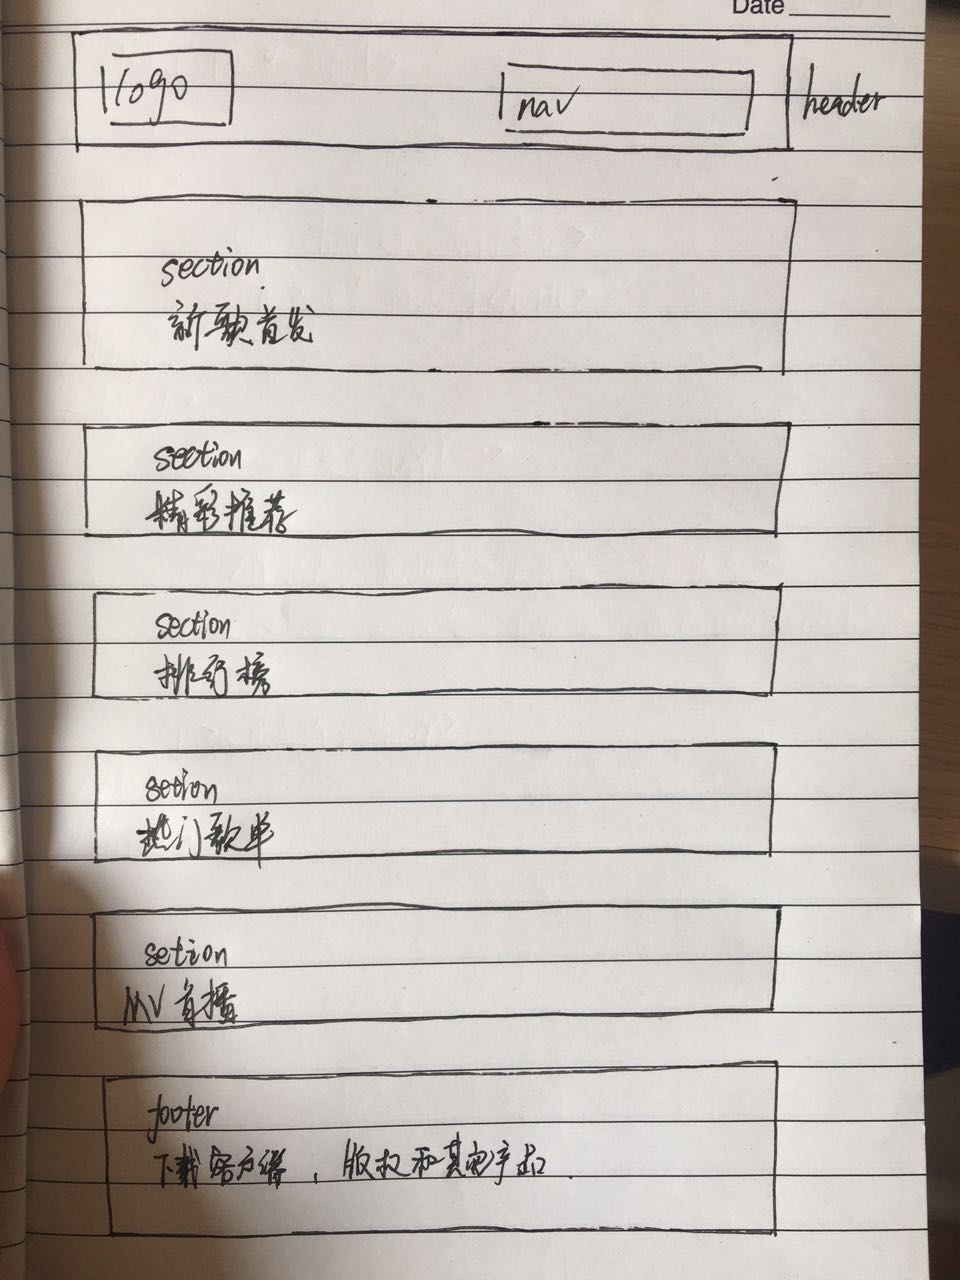 Date
logo
nav
header
section
新歌首发
section
精彩推荐
section
排行榜
setion
热门歌单
setion
MV首播
footer
下载客户端，版权和其它产品